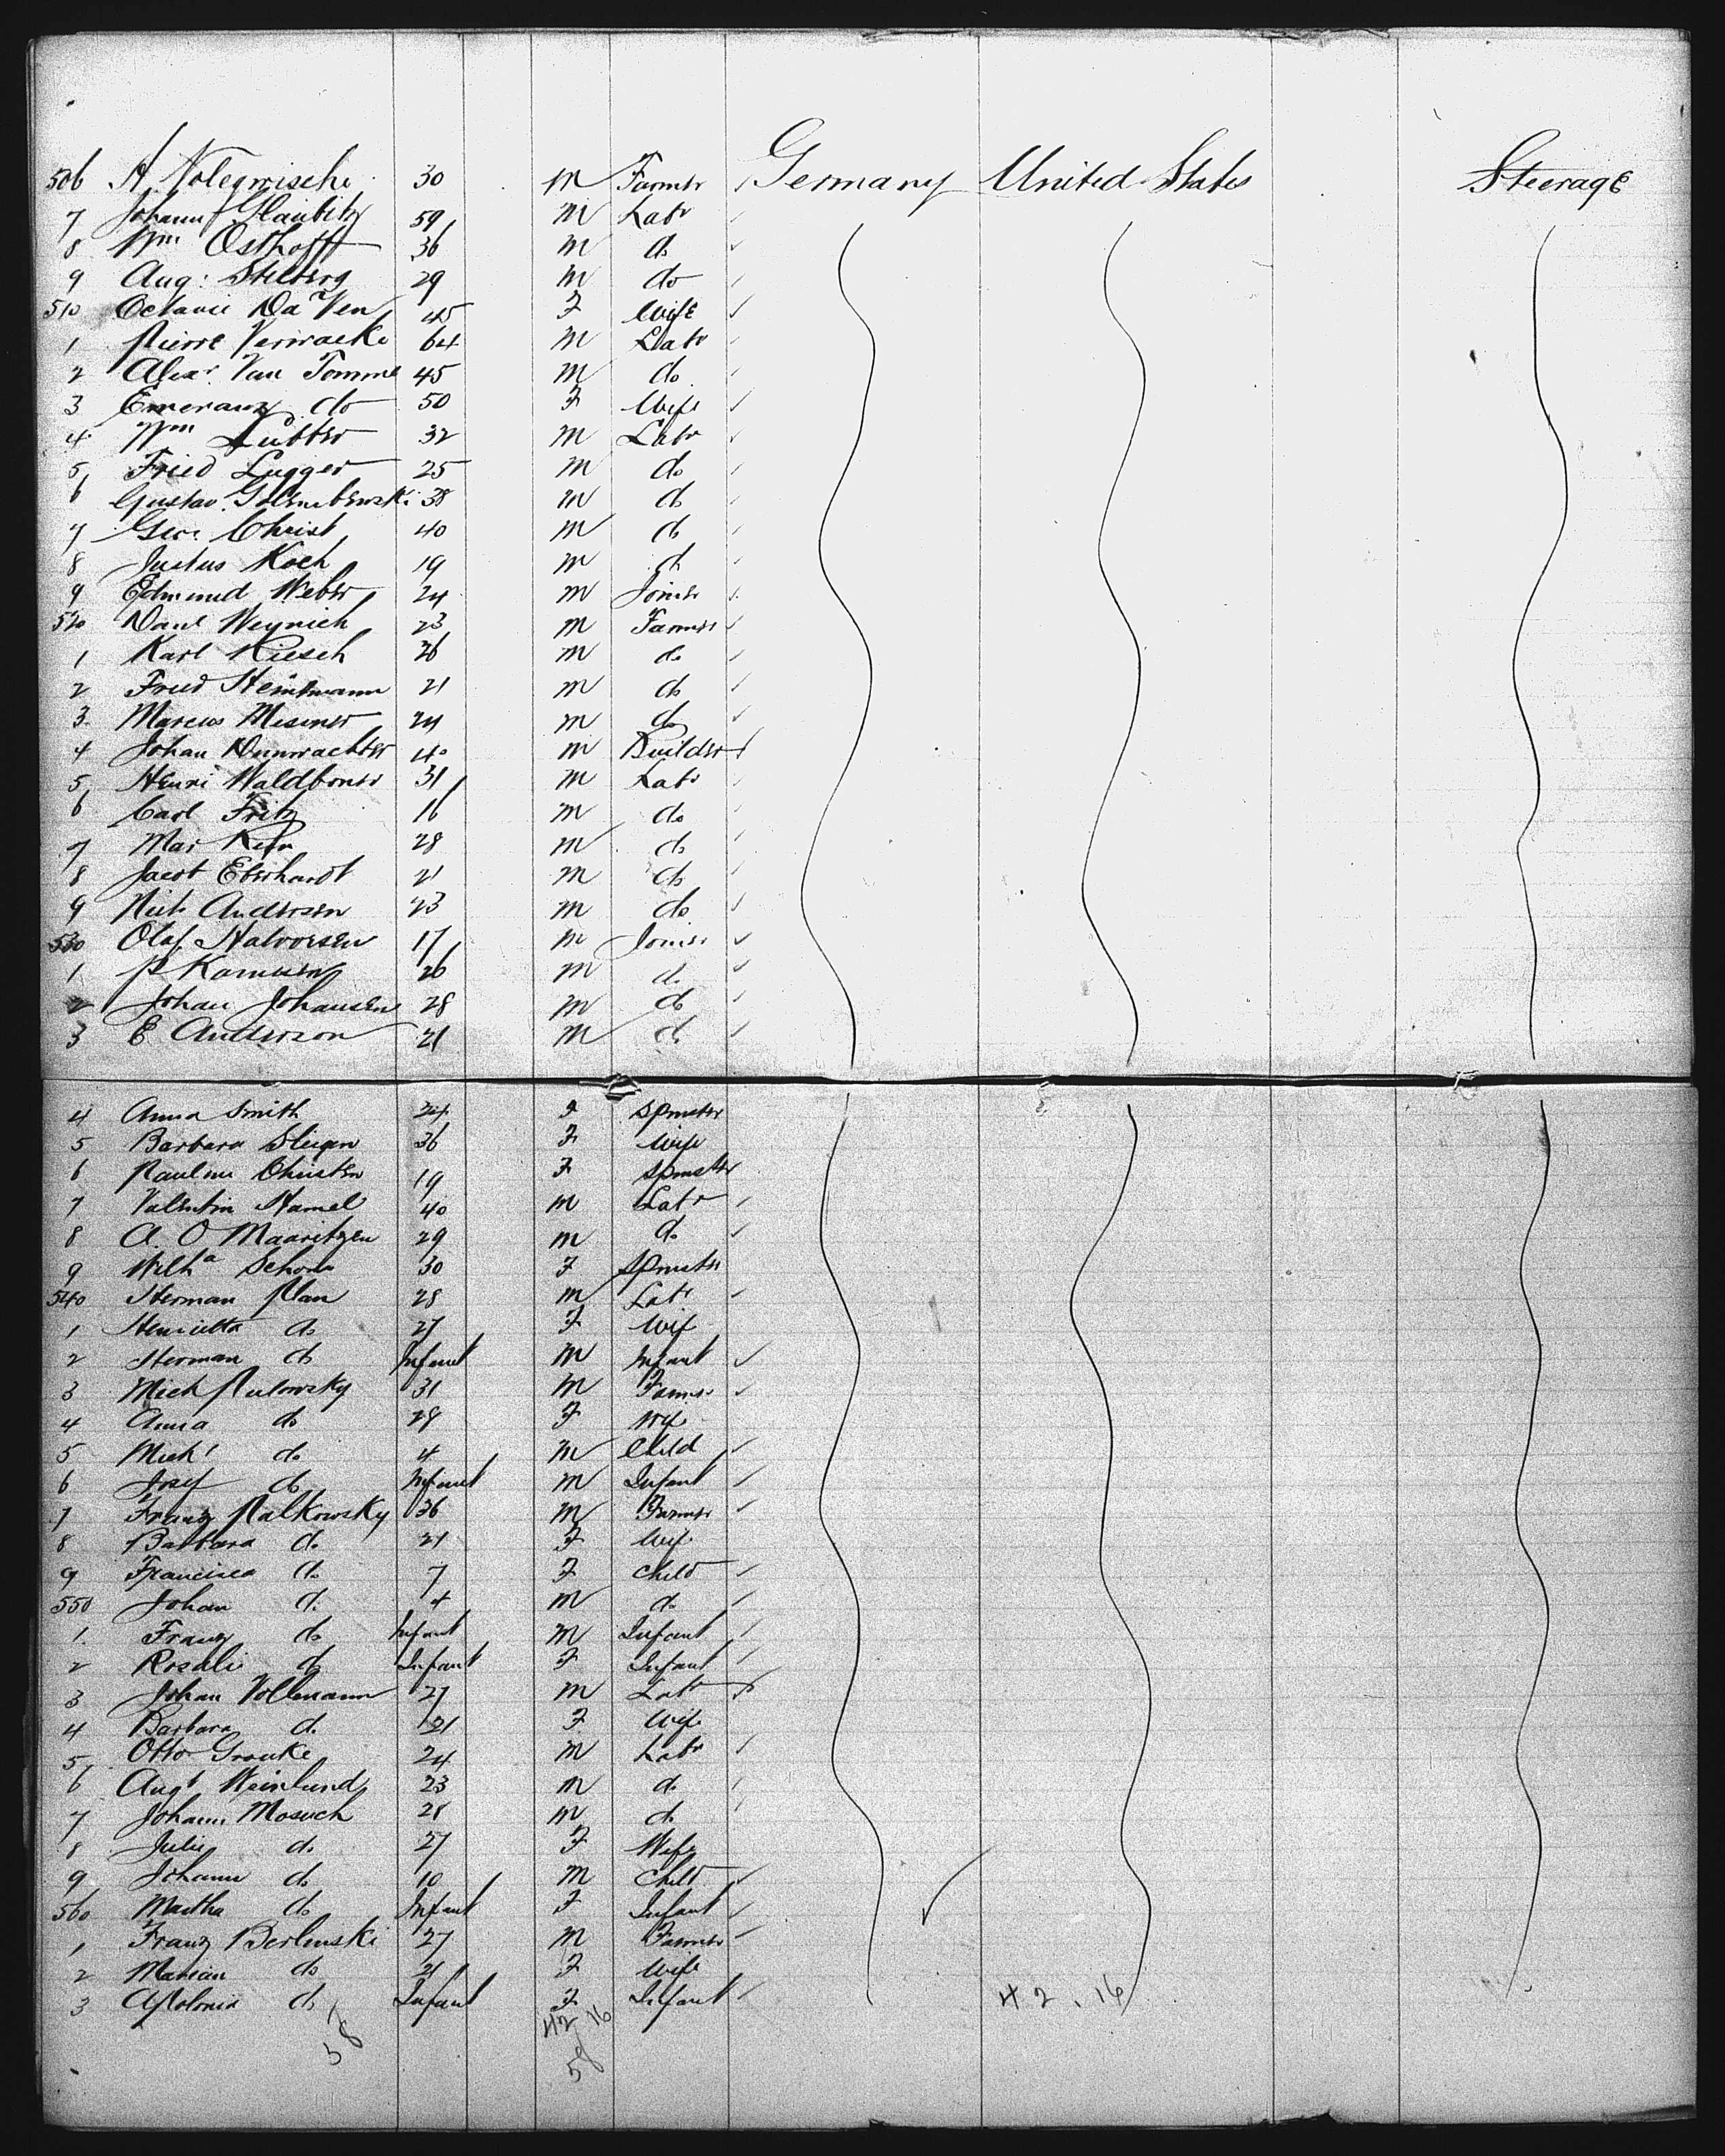 506 A. 30 m Farmer Germany United States Steerage
7 Johann Glaubitz 59 m Labr
8 Wm Osthoff 36 m do
9 Aug: Stelberg 29 m do
510 Octavie Da Ven 45 F Wife
1 Pierre Verwaeke 64 m Labr
2 Alexr. Van Tomme 45 m do
3 Emeranz do 50 F Wife
4 Wm Lutter 32 m Labr
5 Fried Lugger 25 m do
6 Gustav Golembewski 38 m do
7 Geo. Christ 40 m do
8 Justus Koch 19 m do
9 Edmund Weber 24 m Joiner
520 Danl Weynich 23 m Farmer
1 Karl Kiesch 26 m do
2 Fried Heintmann 21 m do
3 Marcus Mesmer 24 m do
4 Johan 40 m Builder
5 Henri 31 m Labr
6 Carl Fritz 16 m do
7 28 m do
8 Jacob Eberhardt 21 m do
9 Andersen 23 m do
530 Olaf Halvorsen 17 m Joiner
1 P 26 m do
2 Johan Johansen 28 m do
3 E Anderson 21 m do
4 Anna Smith 24 F Spinster
5 Barbara 36 F Wife
6 Pauline Christen 19 F Spinster
7 Valentin Hamel 40 m Labr
8 A. O Maaritzen 29 m do
9 Wilha 30 F Spinster
540 Herman Plan 28 m Labr
1 Henrietta do 27 F Wife
2 Herman do Infant m Infant
3 Mich 31 m Farmer
4 Anna do 28 F Wife
5 Michl do 4 m Child
6 Josef do Infant m Infant
7 Franz Palkowsky 36 m Farmer
8 Barbara do 21 F Wife
9 Francisca do 7 F Child
550 Johan do 4 m do
1 Franz do Infant m Infant
2 Rosali do Infant F Infant
3 Johan Vollmann 27 m Labr
4 Barbara do 21 F Wife
5 Otto Granke 24 m Labr
6 Augt Weinlund 23 m do
7 Johann Mosuch 28 m do
8 Julie do 27 F Wife
9 Johann do 10 m Child
560 Martha do Infant F Infant
1 Franz Berlinski 27 m Farmer
2 Marian do 21 F Wife
3 Apolonia do Infant F Infant
42.16
42 16
58
58